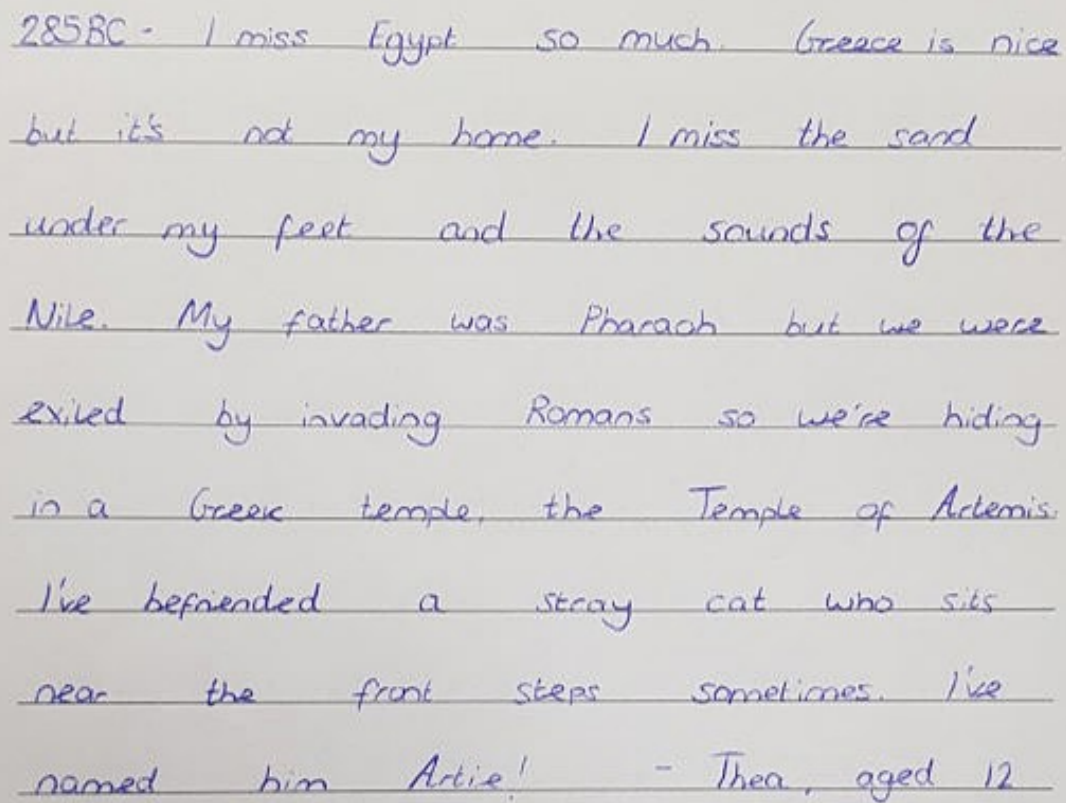 285BC - I miss Egypt so much. Greece is nice
but it's not my home. I miss the sand
under my feet and the sounds of the
Nile. My father was Pharaoh but we were
exiled by invading Romans so we're hiding
in a Greek temple, the Temple of Artemis.
I've befriended a stray cat who sits
near the front steps sometimes. I've
named him Artie! - Thea, aged 12